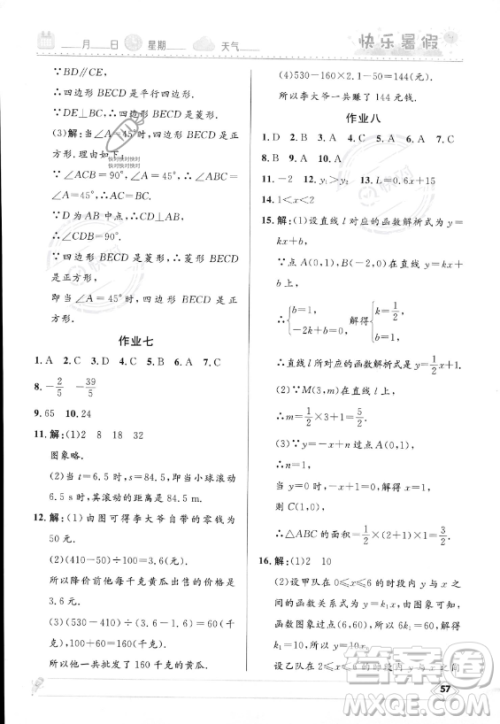 月 日 星期 天气
快乐暑假
∵BD∥CE,
∴四边形 BECD 是平行四边形.
∵DE⊥BC,∴四边形 BECD 是菱形.
(3)解:当∠A=45°时,四边形 BECD 是正
方形.理由如下:
∵∠ACB=90°,∠A=45°,
∴∠ABC=∠A=45°,
∴AC=BC.
∵D 为 AB 中点,∴CD⊥AB,
∴∠CDB=90°.
∵四边形 BECD 是菱形,∴四边形 BECD
是正方形,
即当∠A=45°时,四边形 BECD 是正方
形.
作业七
1. A 2. C 3. D 4. A 5. C 6. C 7. B
8. -2/5 -39/5
9. 65 10. 24
11. 解:(1)2 8 18 32
图象略.
(2)当 t=6.5 时,s=84.5,即当小球滚动
6.5 s 时,其滚动的距离是 84.5 m.
12. 解:(1)由图可得李大爷自带的零钱为
50 元.
(2)(450-50)÷100=3.6(元).
所以降价前他每千克黄瓜出售的价格是
3.6 元.
(3)(530-450)÷(3.6-1.6)+100=
160(千克).
所以他一共批发了 160 千克的黄瓜.
(4)530-160×2.1-50=144(元).
所以李大爷一共赚了 144 元钱.
作业八
1. D 2. B 3. A 4. C 5. A 6. A 7. C
8. B 9. B 10. B
11. -2 12. y₁>y₂ 13. L=0.6x+15
14. 1<x<2
15. 解:(1)设直线 l 对应的函数解析式为 y=
kx+b,
∵点 A(0,1),B(-2,0)在直线 l 上,
∴{b=1, -2k+b=0, 解得{k=1/2, b=1,
∴直线 l 所对应的函数解析式是 y=1/2x+1.
(2)∵M(3,m)在直线 l 上,
∴m=1/2×3+1=5/2.
(3)∵一次函数解析式为 y=-x+1,
当 x=0 时,y=1,所以 C(0,-1),
∴△ABC 的面积=1/2×(2+1)×2=3.
16. 解:(1)2 10
(2)设甲队在 0≤x≤6 的时段内 y 与 x 之
间的函数关系式为 y=kx,由图可知,
函数图象过点(6,60),所以 6k=60,
解得 k=10,所以 y=10x.
设乙队在 2≤x≤6 的时段内 y 与 x 之间
57